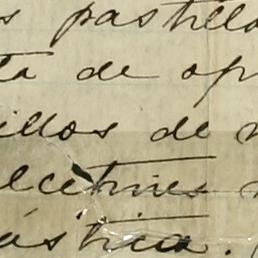 s pastill
ta de op
illos de
lcetines
ástica.